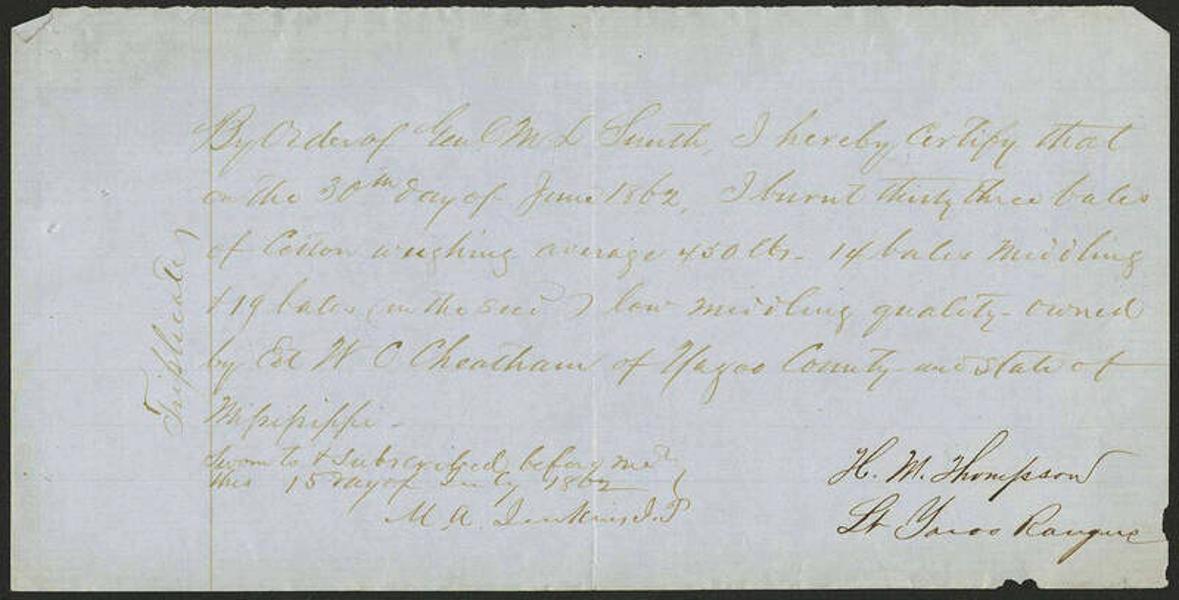 By Order of Genl M L Smith, I hereby certify that
on the 30th day of June 1862, I burnt thirty three bales
of Cotton weighing average 450 lbs - 14 bales middling
& 19 bales (in the seed) low middling quality - owned
by Ed W C Cheatham of Yazoo County and State of
Missisippi -
Sworn to & subscribed before me
this 15 day of July 1862
M A Jenkins J.P
H. M. Thompson
Lt Yazoo Rangers
Triplicate